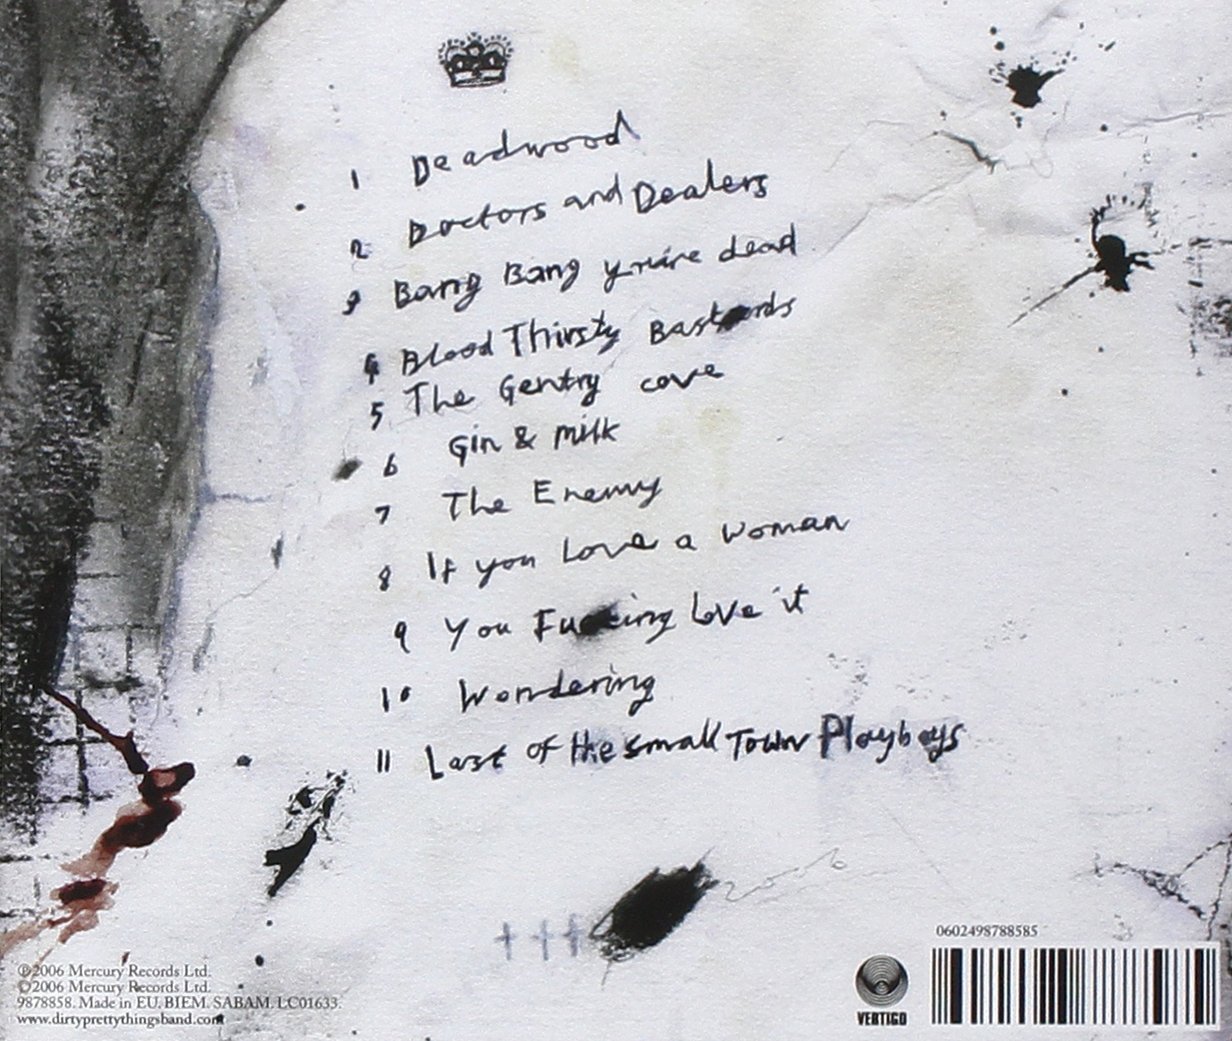 1 Deadwood
2 Doctors and Dealers
3 Bang Bang you're dead
4 Blood Thirsty Bastards
5 The Gentry cove
6 Gin & Milk
7 The Enemy
8 If you Love a woman
9 You Fucking Love it
10 Wondering
11 Last of the small Town Playboys
℗2006 Mercury Records Ltd.
©2006 Mercury Records Ltd.
9878858. Made in EU. BIEM. SABAM. LC01633.
www.dirtyprettythingsband.com
VERTIGO
0602498788585